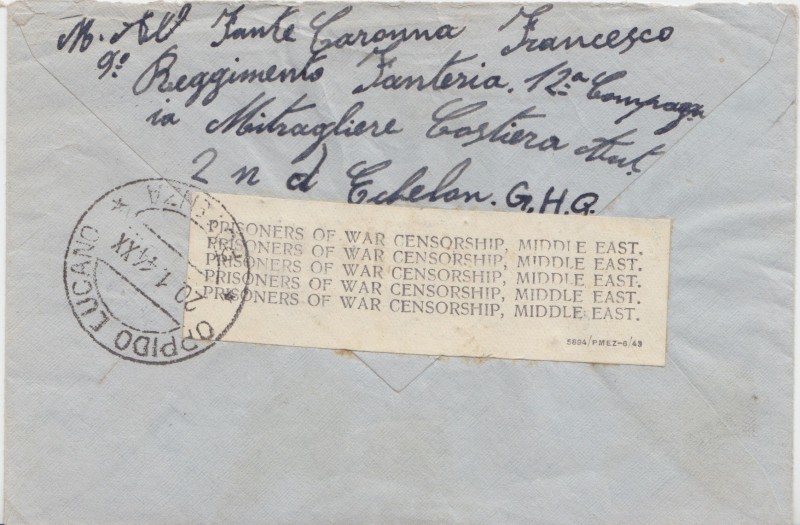 M. All Fante Caronna Francesco
9º Reggimento Fanteria. 12ª Compagn
ia Mitragliere Costiera Aut.
2nd Echelon. G.H.Q.
PRISONERS OF WAR CENSORSHIP, MIDDLE EAST.
PRISONERS OF WAR CENSORSHIP, MIDDLE EAST.
PRISONERS OF WAR CENSORSHIP, MIDDLE EAST.
PRISONERS OF WAR CENSORSHIP, MIDDLE EAST.
PRISONERS OF WAR CENSORSHIP, MIDDLE EAST.
5684/PMEZ-6/43
OPPIDO LUCANO
20.1.44.XX